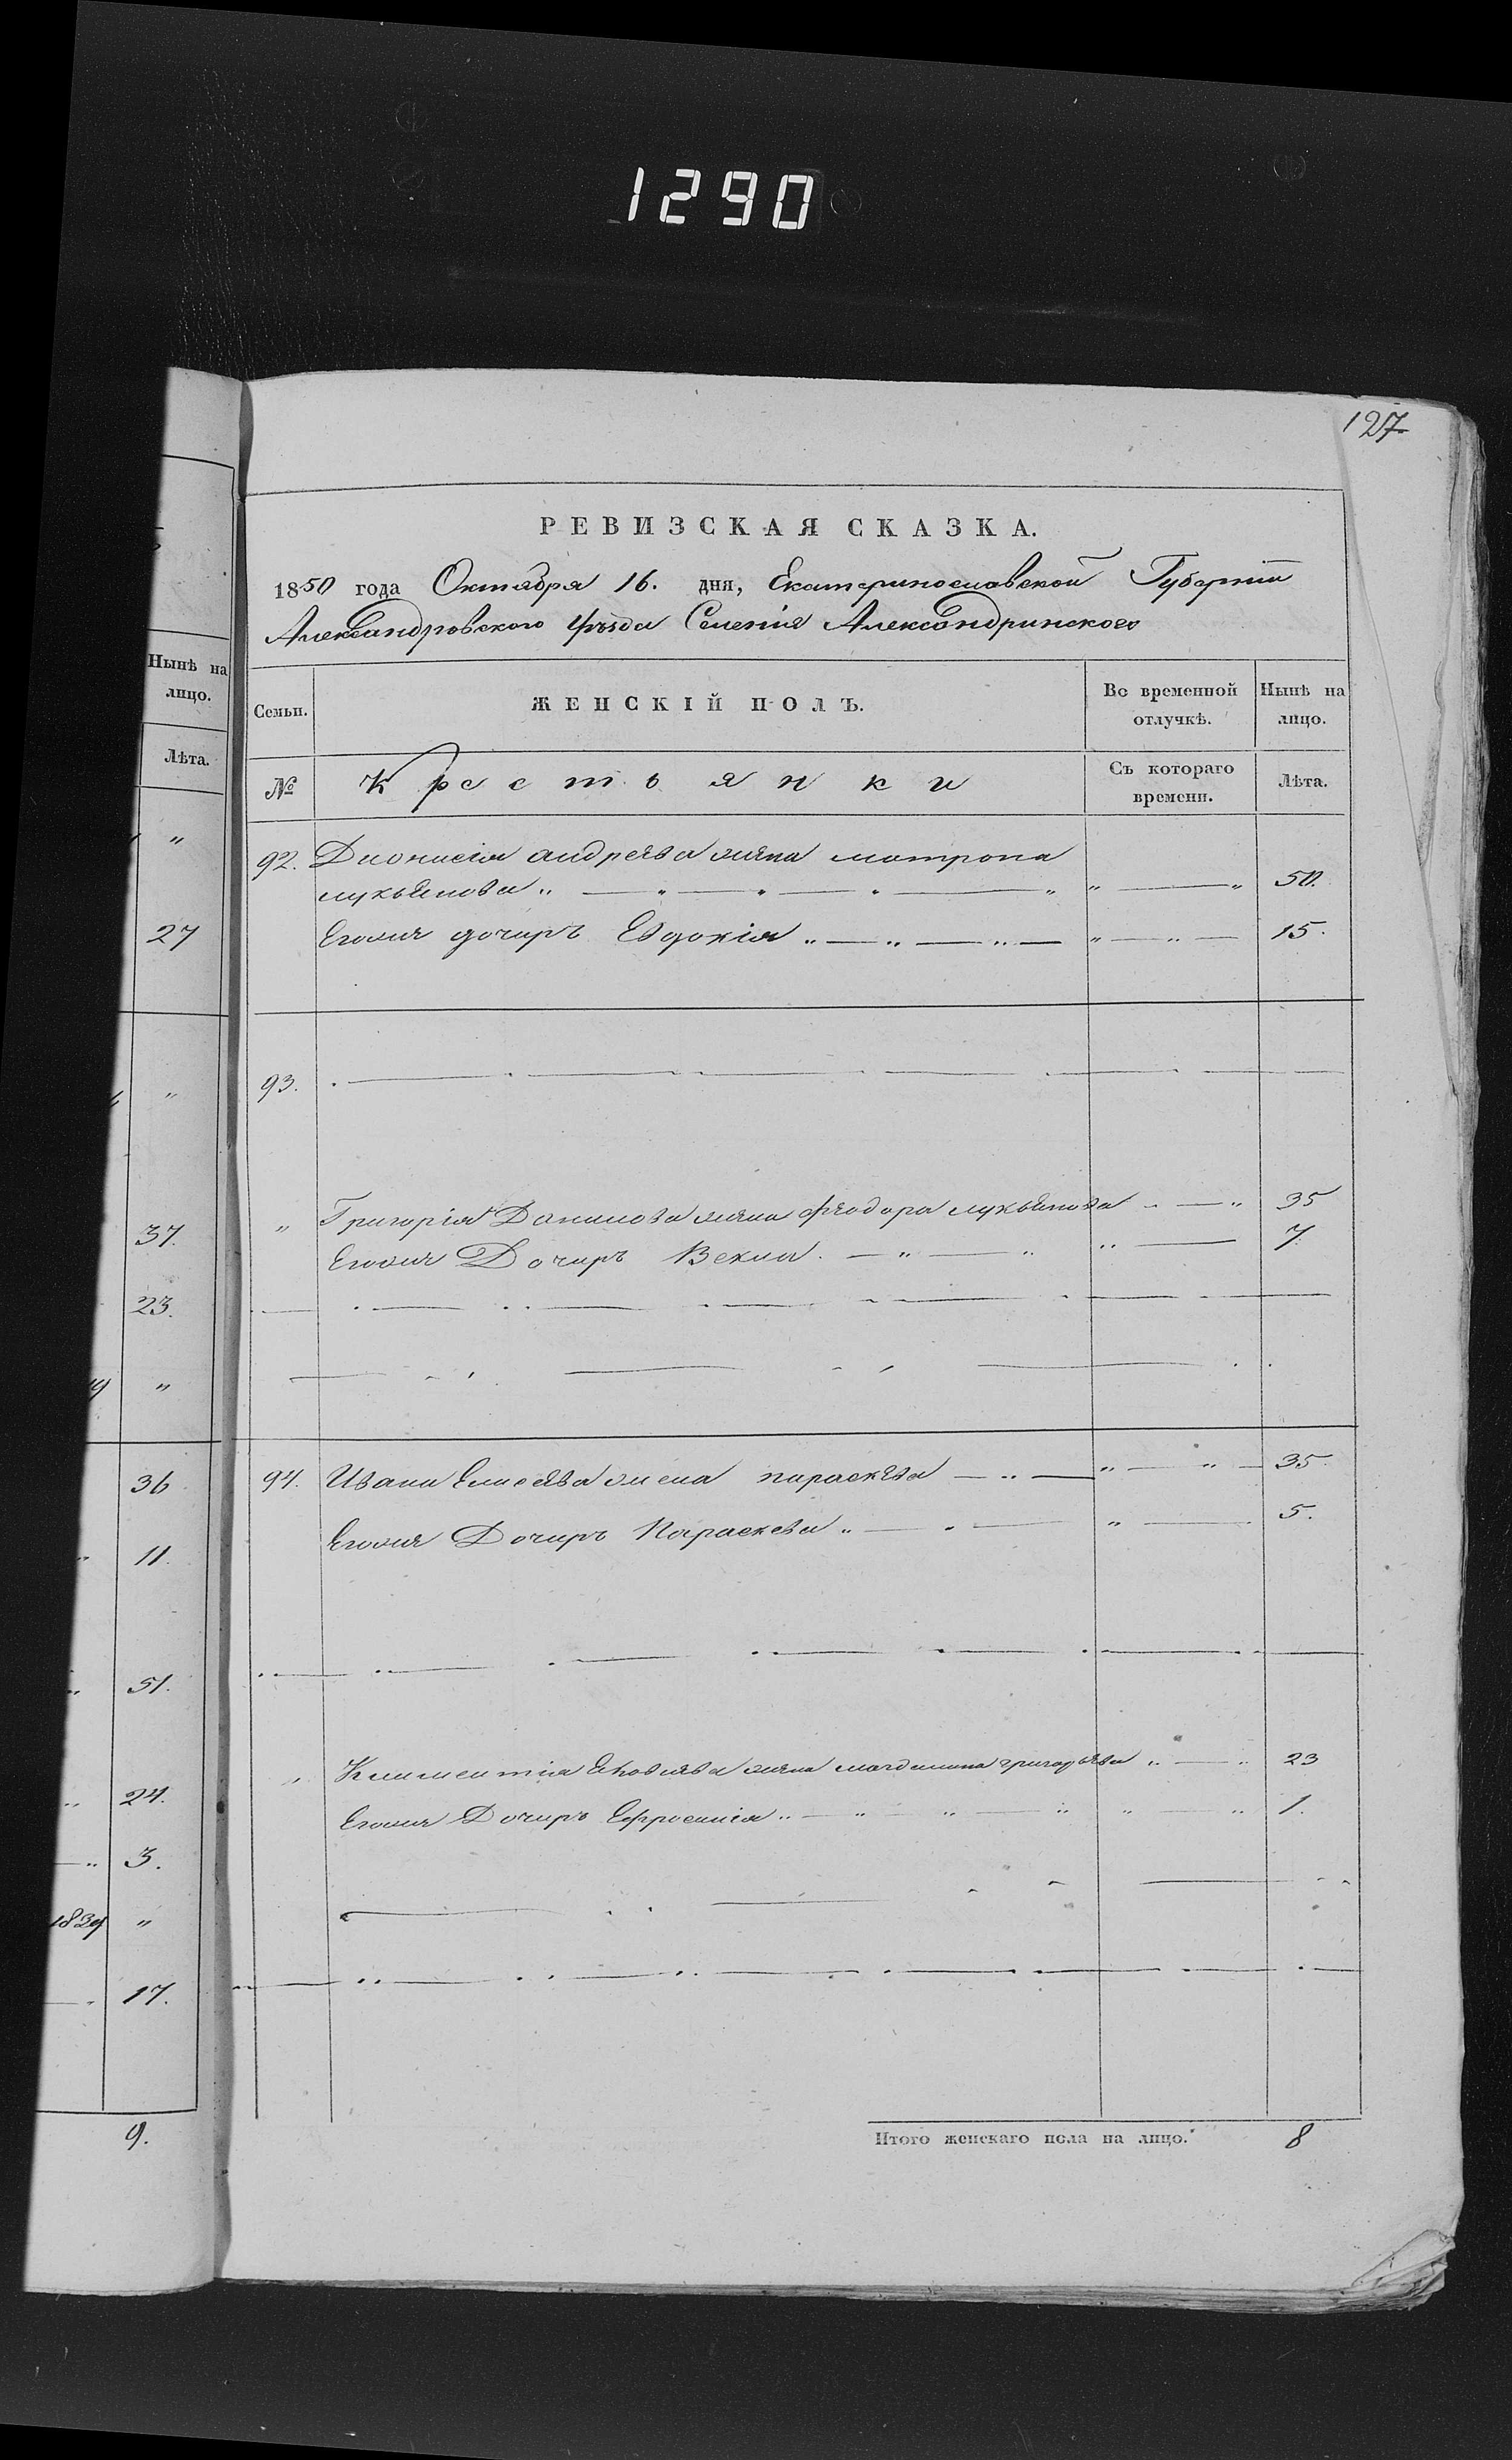 1290
127
РЕВИЗСКАЯ СКАЗКА.
1850 года Октября 16. дня, Екатеринославской Губернии
Александровского уѣзда Селенія Александринского
Нынѣ на
лицо.
Лѣта.
"
27
"
37.
23.
"
36
11.
51.
24.
3.
1839 "
17.
9.
Семьи. ЖЕНСКІЙ ПОЛЪ. Во временной отлучкѣ. Нынѣ на лицо.
№ Крестьянки Съ котораго времени. Лѣта.
92. Дионисія андреева жена матрона
лукьянова " — " — " — " — " " — " 50.
Егожъ дочерь Евдокія " — " — " — " — " — 15.
93.
" Григорія Данилова жена феодора лукьянова " — " 35
Егожъ Дочерь Векла. — " — " " — 7.
94. Ивана Елисѣева жена параскева — " — " — " — 35
Егожъ Дочерь Параскева " — " — " — 5.
" Климентія Яковлева жена магдалина григорьева " — " 23
Егожъ Дочерь Ефросинія " — " — " — " " " 1.
Итого женскаго пола на лицо. 8